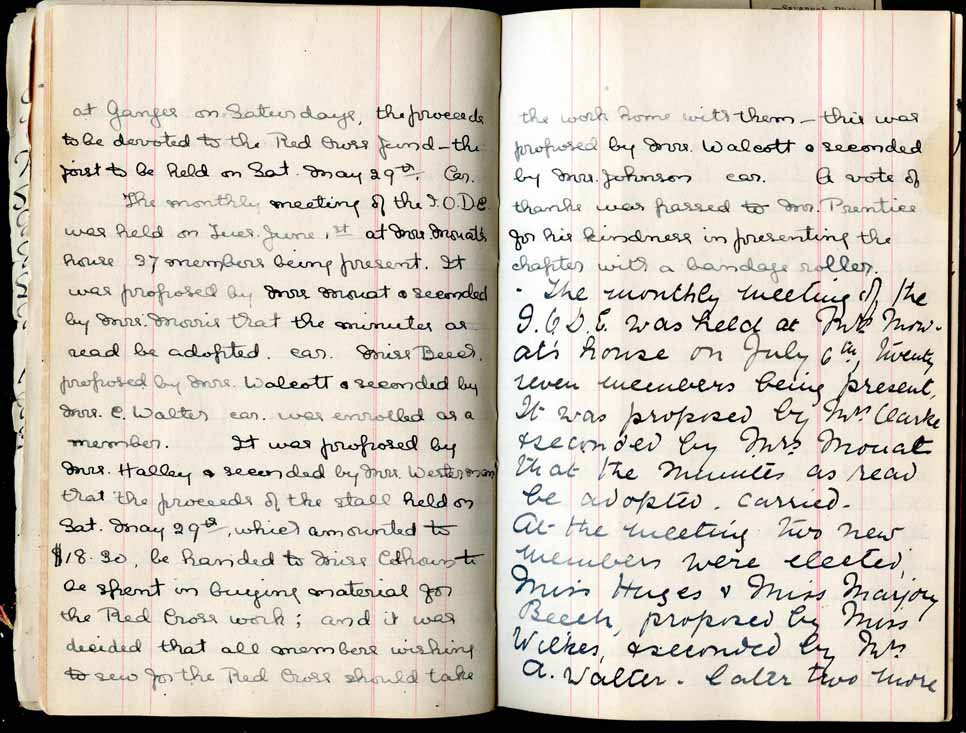 at Ganges on Saturdays, the proceeds
to be devoted to the Red Cross Fund – the
first to be held on Sat. May 29th. Car.
The monthly meeting of the I.O.D.E.
was held on Tues. June 1st at Mrs. Mouat's
house 27 members being present. It
was proposed by Mrs Mouat & seconded
by Mrs. Morris that the minutes as
read be adopted. car. Miss Beech,
proposed by Mrs. Walcott & seconded by
Mrs. C. Walter car. was enrolled as a
member. It was proposed by
Mrs. Halley & seconded by Mrs. Westerman
that the proceeds of the stall held on
Sat. May 29th, which amounted to
$18.20, be handed to Miss Calhoun to
be spent in buying material for
the Red Cross work; and it was
decided that all members wishing
to sew for the Red Cross should take
the work home with them – this was
proposed by Mrs. Walcott & seconded
by Mrs. Johnson car. A vote of
thanks was passed to Mr. Prentice
for his kindness in presenting the
chapter with a bandage roller.
The monthly meeting of the
I.O.D.E. was held at Mrs Mow-
at's house on July 6th, twenty
seven members being present,
It was proposed by Mrs Clarke
& seconded by Mrs Mouat
that the minutes as read
be adopted. carried.
At the meeting two new
members were elected,
Miss Huges & Miss Marjory
Beech, proposed by Miss
Wilkes, & seconded by Mrs
A. Walter. Later two more